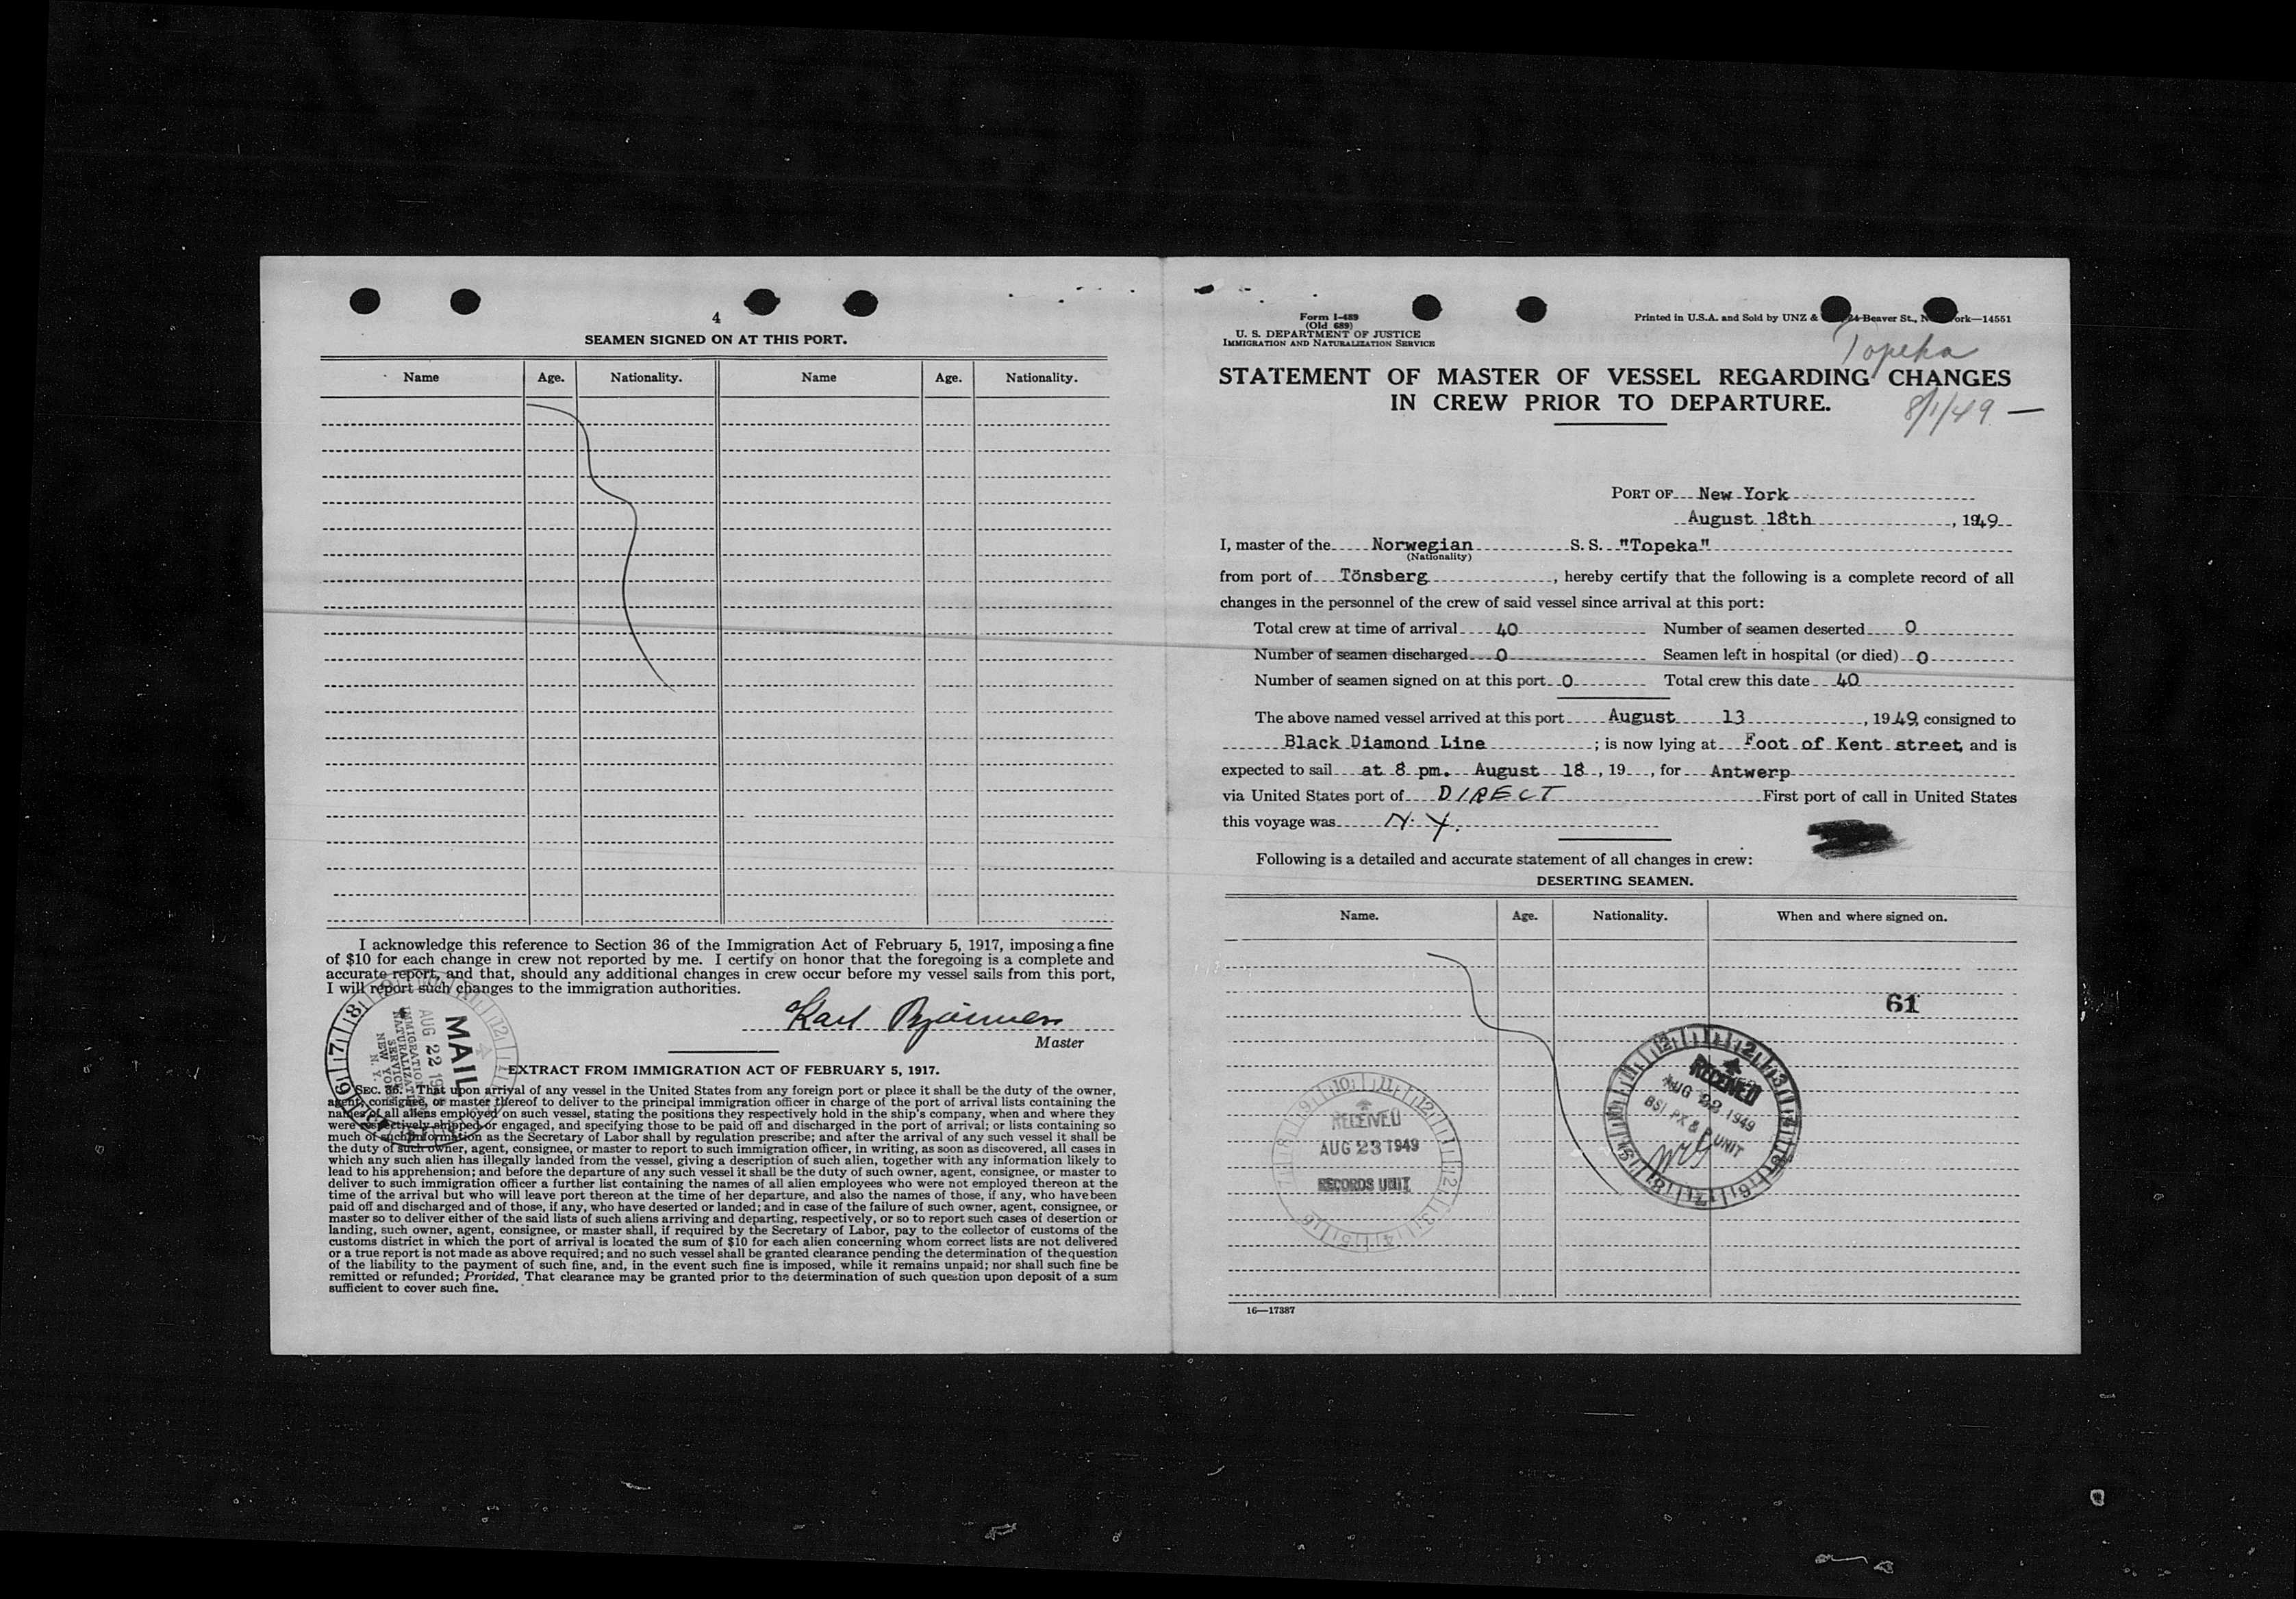 4
SEAMEN SIGNED ON AT THIS PORT.
Name Age. Nationality. Name Age. Nationality.
I acknowledge this reference to Section 36 of the Immigration Act of February 5, 1917, imposing a fine
of $10 for each change in crew not reported by me. I certify on honor that the foregoing is a complete and
accurate report, and that, should any additional changes in crew occur before my vessel sails from this port,
I will report such changes to the immigration authorities.
Karl
Master
MAIL
AUG 22 19
IMMIGRATION
NATURALIZATI
SERVICE
NEW YORK
N. Y.
EXTRACT FROM IMMIGRATION ACT OF FEBRUARY 5, 1917.
SEC. 36. That upon arrival of any vessel in the United States from any foreign port or place it shall be the duty of the owner,
agent, consignee, or master thereof to deliver to the principal immigration officer in charge of the port of arrival lists containing the
names of all aliens employed on such vessel, stating the positions they respectively hold in the ship's company, when and where they
were respectively shipped or engaged, and specifying those to be paid off and discharged in the port of arrival; or lists containing so
much of such information as the Secretary of Labor shall by regulation prescribe; and after the arrival of any such vessel it shall be
the duty of such owner, agent, consignee, or master to report to such immigration officer, in writing, as soon as discovered, all cases in
which any such alien has illegally landed from the vessel, giving a description of such alien, together with any information likely to
lead to his apprehension; and before the departure of any such vessel it shall be the duty of such owner, agent, consignee, or master to
deliver to such immigration officer a further list containing the names of all alien employees who were not employed thereon at the
time of the arrival but who will leave port thereon at the time of her departure, and also the names of those, if any, who have been
paid off and discharged and of those, if any, who have deserted or landed; and in case of the failure of such owner, agent, consignee, or
master so to deliver either of the said lists of such aliens arriving and departing, respectively, or so to report such cases of desertion or
landing, such owner, agent, consignee, or master shall, if required by the Secretary of Labor, pay to the collector of customs of the
customs district in which the port of arrival is located the sum of $10 for each alien concerning whom correct lists are not delivered
or a true report is not made as above required; and no such vessel shall be granted clearance pending the determination of the question
of the liability to the payment of such fine, and, in the event such fine is imposed, while it remains unpaid; nor shall such fine be
remitted or refunded; Provided, That clearance may be granted prior to the determination of such question upon deposit of a sum
sufficient to cover such fine.
Form I-489
(Old 689)
U. S. DEPARTMENT OF JUSTICE
IMMIGRATION AND NATURALIZATION SERVICE
Printed in U.S.A. and Sold by UNZ & 24 Beaver St., N ork—14551
Topeka
STATEMENT OF MASTER OF VESSEL REGARDING CHANGES
IN CREW PRIOR TO DEPARTURE.
8/1/49 —
PORT OF New York
August 18th, 1949
I, master of the Norwegian S. S. "Topeka"
(Nationality)
from port of Tönsberg, hereby certify that the following is a complete record of all
changes in the personnel of the crew of said vessel since arrival at this port:
Total crew at time of arrival 40 Number of seamen deserted 0
Number of seamen discharged 0 Seamen left in hospital (or died) 0
Number of seamen signed on at this port 0 Total crew this date 40
The above named vessel arrived at this port August 13, 1949, consigned to
Black Diamond Line; is now lying at Foot of Kent street, and is
expected to sail at 8 pm. August 18, 19, for Antwerp
via United States port of DIRECT First port of call in United States
this voyage was N. Y.
Following is a detailed and accurate statement of all changes in crew:
DESERTING SEAMEN.
Name. Age. Nationality. When and where signed on.
61
RECEIVED
AUG 22 1949
BSI PX & P UNIT
RECEIVED
AUG 23 1949
RECORDS UNIT
16—17387